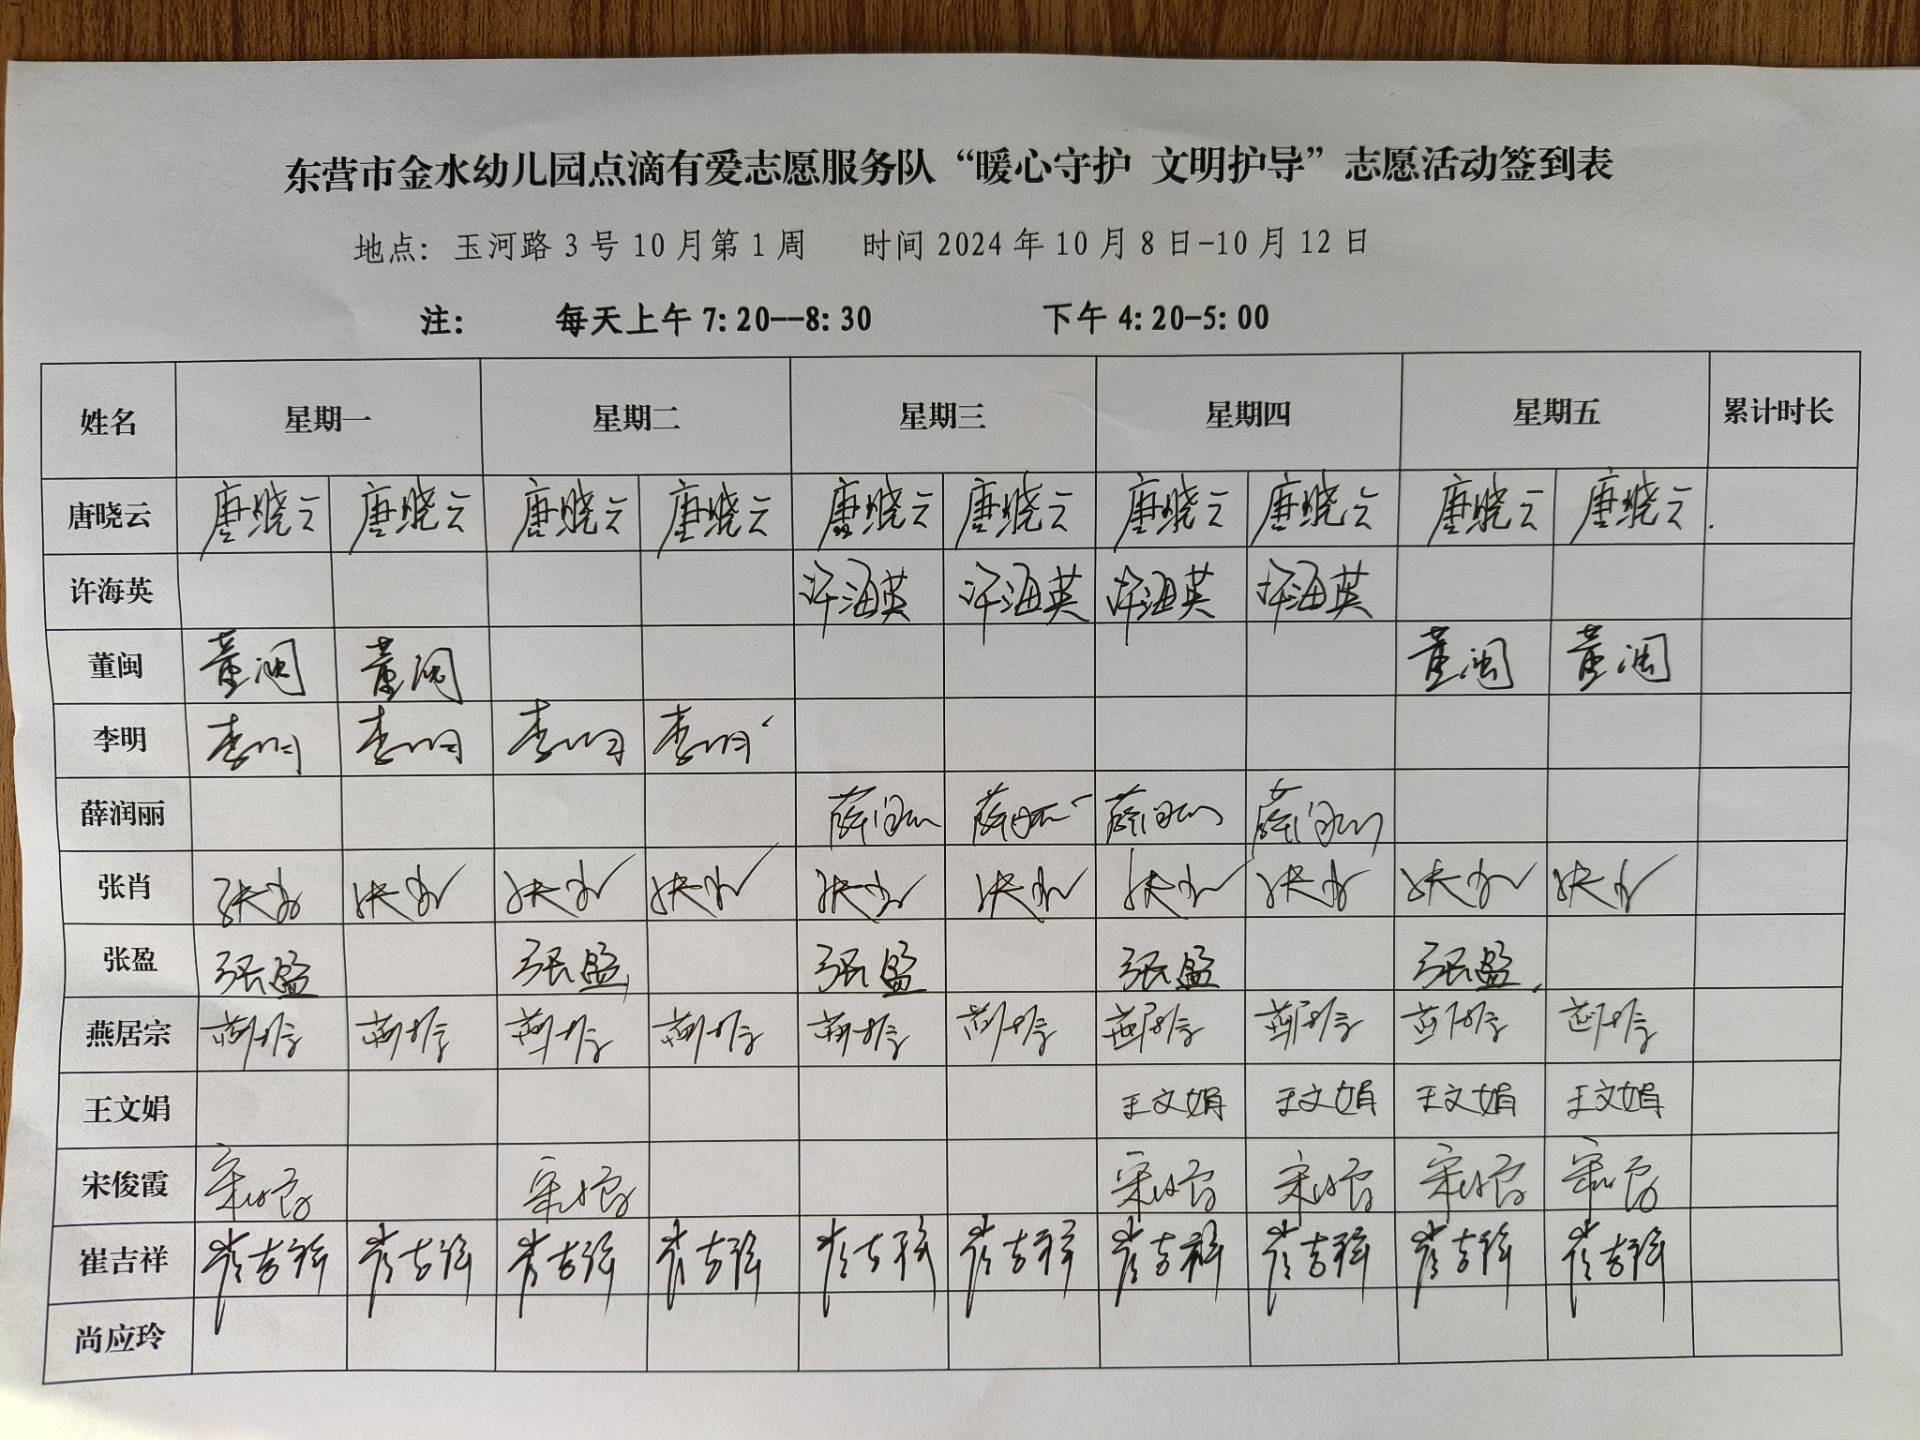 东营市金水幼儿园点滴有爱志愿服务队“暖心守护 文明护导”志愿活动签到表
地点：玉河路3号10月第1周 时间2024年10月8日-10月12日
注： 每天上午7:20--8:30 下午4:20-5:00
姓名 星期一 星期二 星期三 星期四 星期五 累计时长
唐晓云 唐晓云 唐晓云 唐晓云 唐晓云 唐晓云 唐晓云 唐晓云 唐晓云 唐晓云 唐晓云
许海英 许海英 许海英 许海英 许海英
董闽 董闽 董闽 董闽 董闽
李明 李明 李明 李明 李明
薛润丽 薛润丽 薛润丽 薛润丽 薛润丽
张肖 张肖 张肖 张肖 张肖 张肖 张肖 张肖 张肖 张肖 张肖
张盈 张盈 张盈 张盈 张盈 张盈
燕居宗 燕居宗 燕居宗 燕居宗 燕居宗 燕居宗 燕居宗 燕居宗 燕居宗 燕居宗 燕居宗
王文娟 王文娟 王文娟 王文娟 王文娟
宋俊霞 宋俊霞 宋俊霞 宋俊霞 宋俊霞 宋俊霞 宋俊霞
崔吉祥 崔吉祥 崔吉祥 崔吉祥 崔吉祥 崔吉祥 崔吉祥 崔吉祥 崔吉祥 崔吉祥 崔吉祥
尚应玲